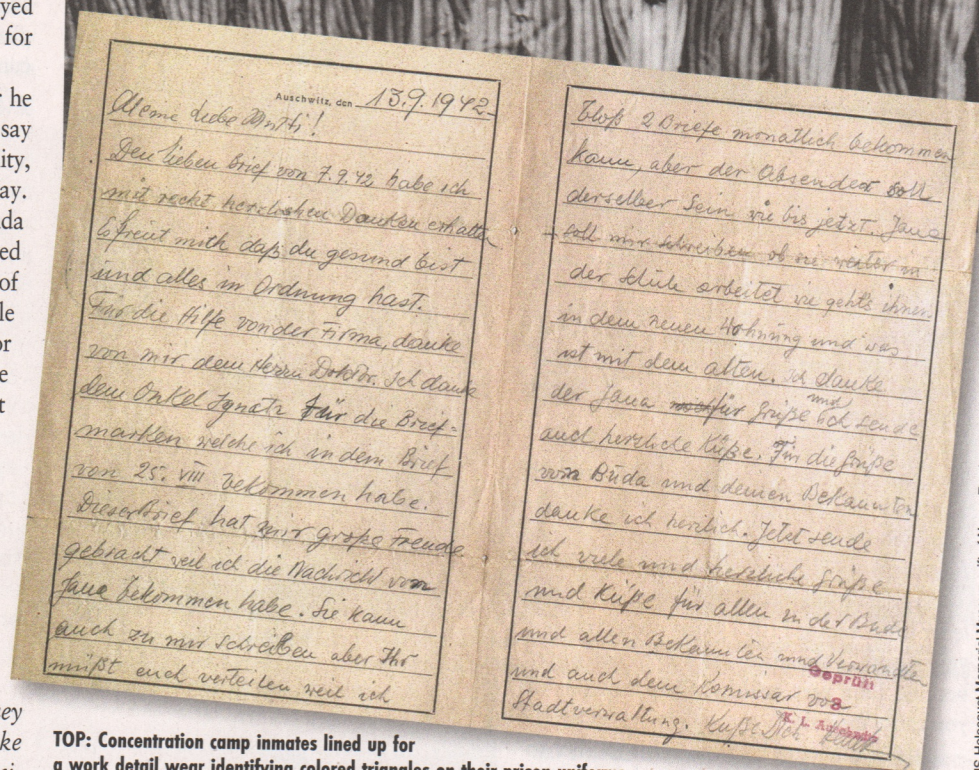 yed
for
he
say
ity,
ay.
da
ed
of
le
or
e
t
ey
ke
Auschwitz, den 13.9.1942
Meine liebe Mutti!
Den lieben Brief von 7.9.42 habe ich
mit recht herzlichen Danken erhalten
Es freut mich daß du gesund bist
und alles in Ordnung hast.
Für die Hilfe von der Firma, danke
von mir dem Herrn Doktor. Ich danke
dem Onkel Ignatz für die Brief=
marken welche ich in dem Brief
von 25. VIII bekommen habe.
Dieser Brief hat mir große Freude
gebracht weil ich die Nachricht von
Jana bekommen habe. Sie kann
auch zu mir schreiben aber Ihr
müßt euch verteilen weil ich
bloß 2 Briefe monatlich bekommen
kann, aber der Absender soll
derselber sein wie bis jetzt. Jana
soll mir schreiben ob sie weiter in
der Schule arbeitet wie gehts ihnen
in dem neuen Wohnung und was
ist mit dem alten. Ich danke
der Jana für Grüße und ich sende
auch herzliche Küße. Für die Grüße
vom Buda und deinen Bekannten
danke ich herzlich. Jetzt sende
ich viele und herzliche Grüße
und Küße für allen in der Bude
und allen Bekannten und Verwandten
und auch dem Komissar von
Stadtverwaltung. Küße Dich
Geprüft
8
K. L. Auschwitz
TOP: Concentration camp inmates lined up for
a work detail wear identifying colored triangles on their prison uniforms